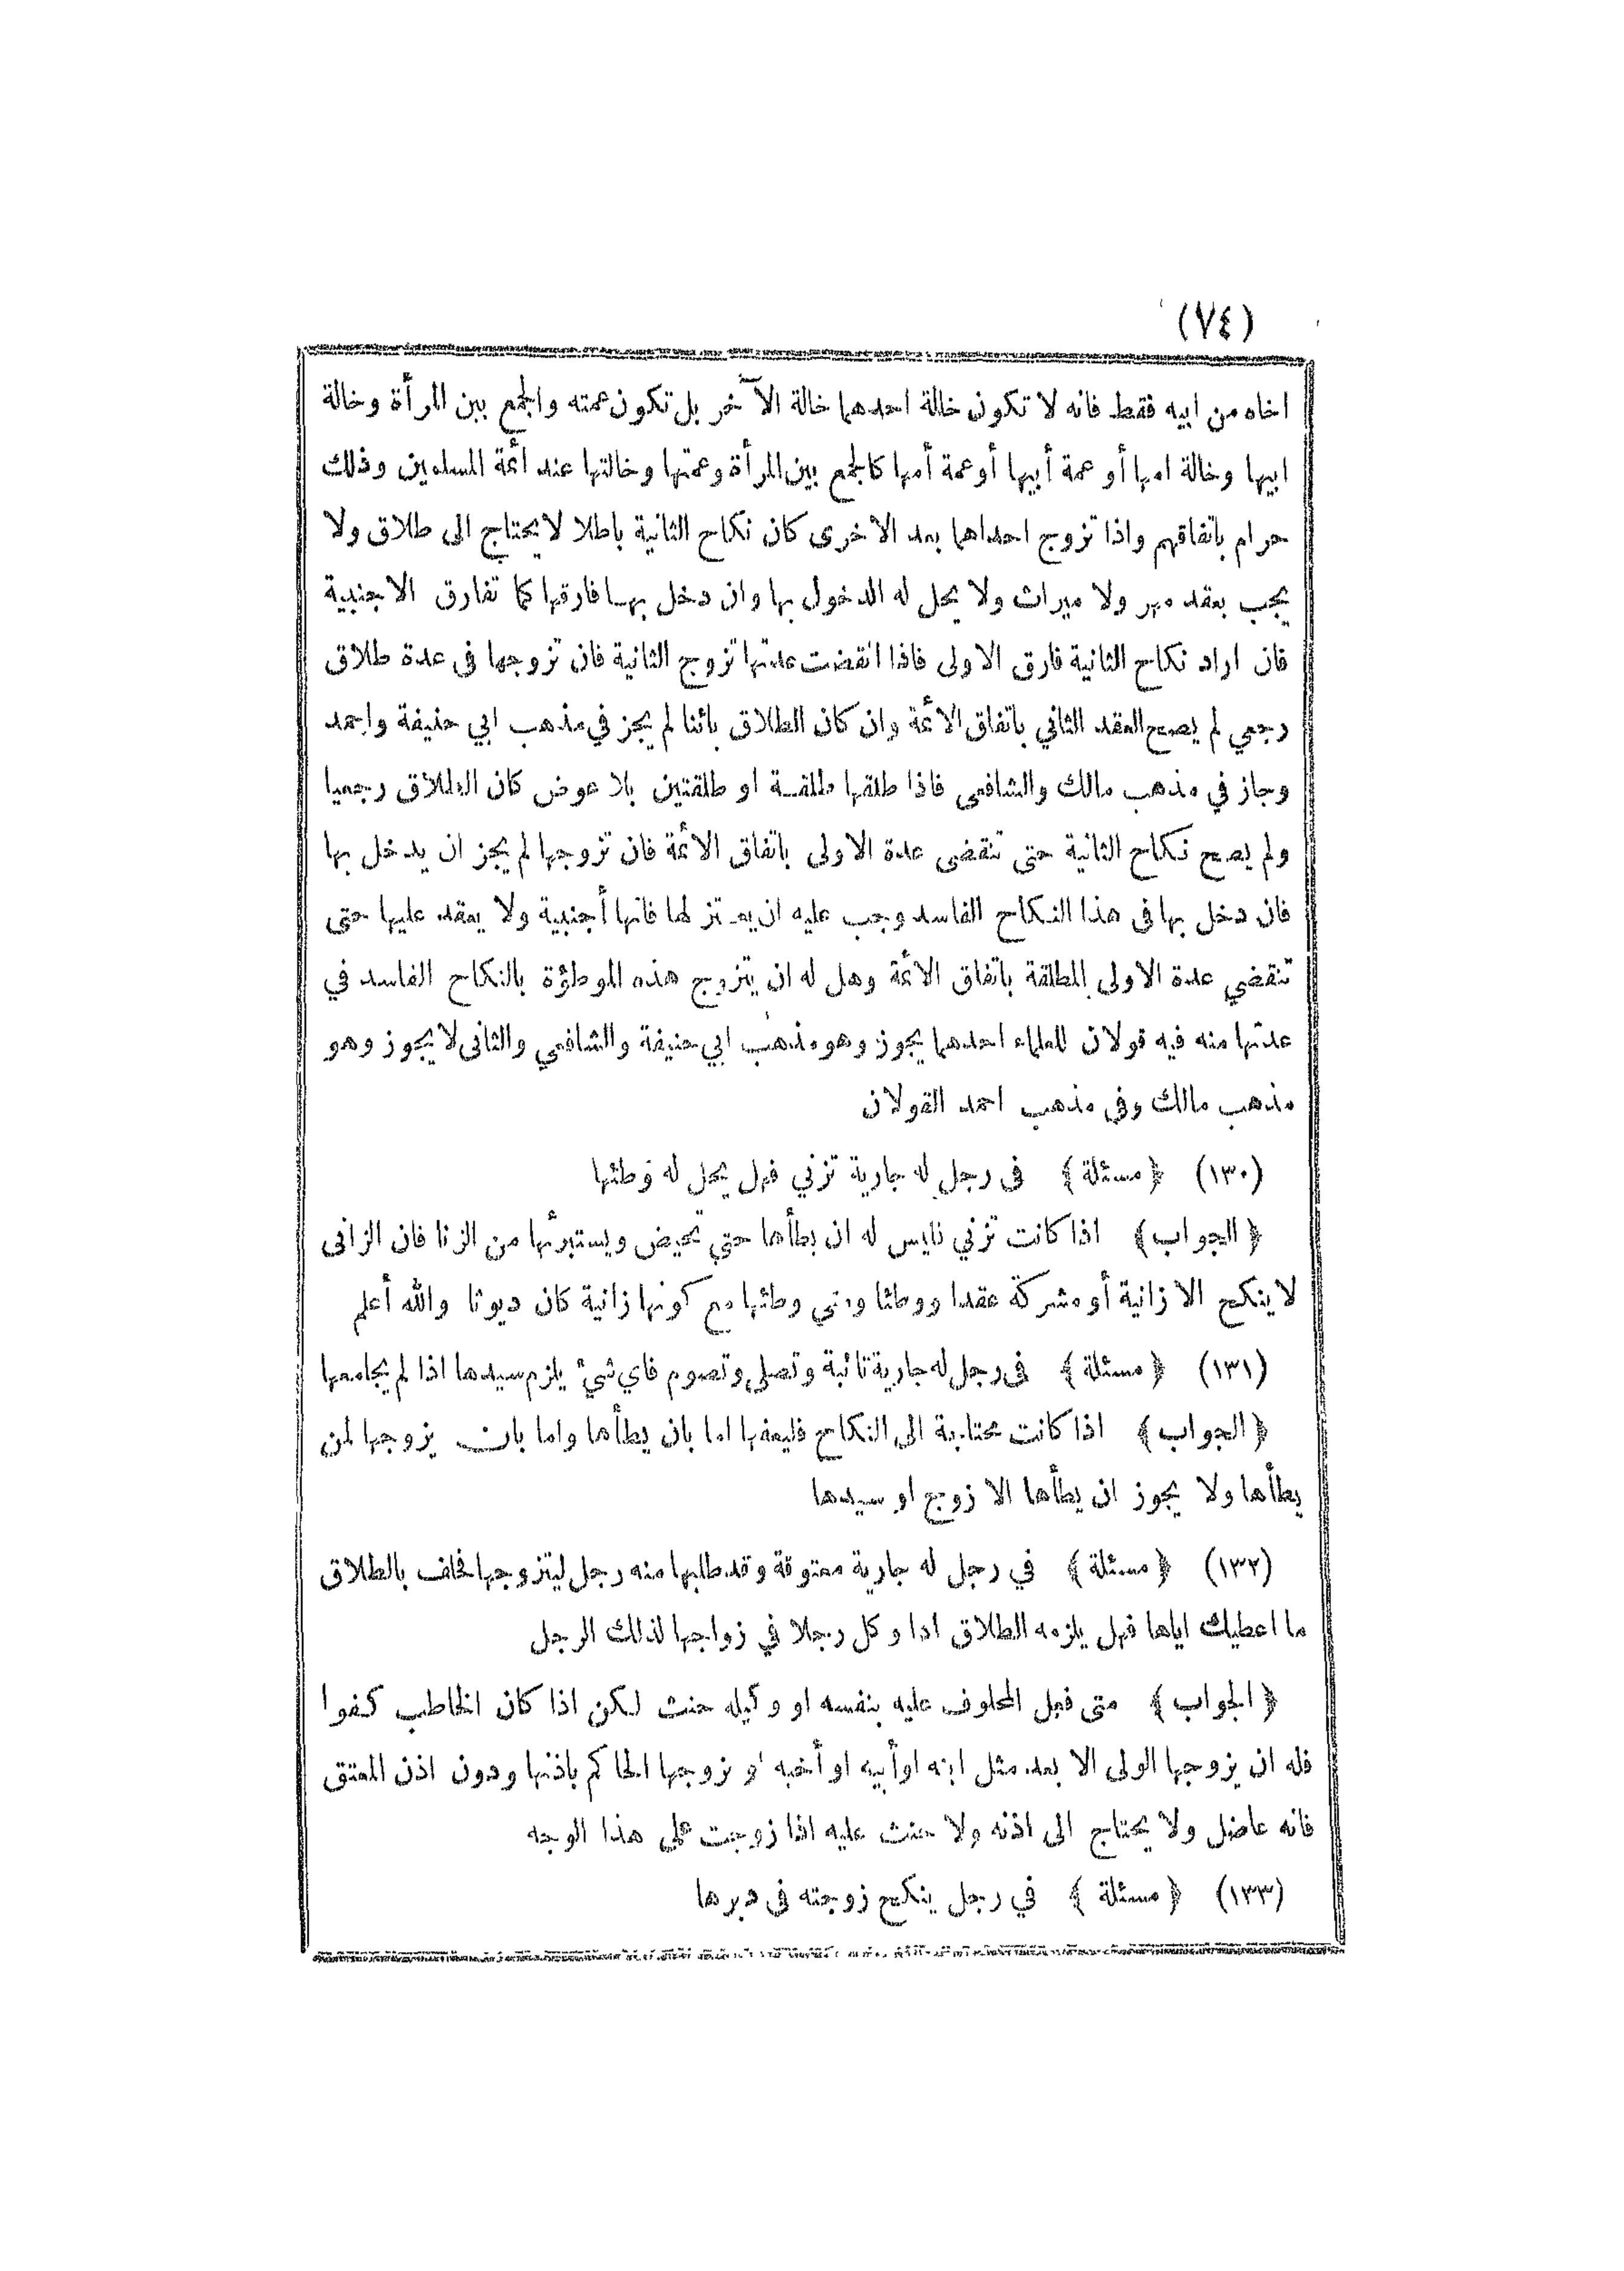 (٧٤)
اخاه من ابيه فقط فانه لا تكون خالة احدهما خالة الآخر بل تكون عمته والجمع بين المرأة وخالة
ابيها وخالة امها أو عمة أبيها أو عمة أمها كالجمع بين المرأة وعمتها وخالتها عند ائمة المسلمين وذلك
حرام باتفاقهم واذا تزوج احداهما بعد الاخرى كان نكاح الثانية باطلا لا يحتاج الى طلاق ولا
يجب بعقد مهر ولا ميراث ولا يحل له الدخول بها وان دخل بها فارقها كما تفارق الاجنبية
فان اراد نكاح الثانية فارق الاولى فاذا انقضت عدتها تزوج الثانية فان تزوجها فى عدة طلاق
رجعي لم يصح العقد الثاني باتفاق الائمة وان كان الطلاق بائنا لم يجز في مذهب ابي حنيفة واحمد
وجاز في مذهب مالك والشافعى فاذا طلقها طلقة او طلقتين بلا عوض كان الطلاق رجعيا
ولم يصح نكاح الثانية حتى تنقضى عدة الاولى باتفاق الائمة فان تزوجها لم يجز ان يدخل بها
فان دخل بها فى هذا النكاح الفاسد وجب عليه ان يعتزلها فانها أجنبية ولا يعقد عليها حتى
تنقضي عدة الاولى المطلقة باتفاق الائمة وهل له ان يتزوج هذه الموطؤة بالنكاح الفاسد في
عدتها منه فيه قولان للعلماء احدهما يجوز وهو مذهب ابي حنيفة والشافعي والثانى لا يجوز وهو
مذهب مالك وفى مذهب احمد القولان
(١٣٠) ﴿مسئلة﴾ فى رجل له جارية تزني فهل يحل له وطئها
﴿الجواب﴾ اذا كانت تزني فليس له ان يطأها حتى تحيض ويستبرئها من الزنا فان الزانى
لا ينكح الا زانية أو مشركة عقدا ووطئا ومتي وطئها مع كونها زانية كان ديوثا والله أعلم
(١٣١) ﴿مسئلة﴾ فى رجل له جارية تائبة وتصلى وتصوم فاي شيئ يلزم سيدها اذا لم يجامعها
﴿الجواب﴾ اذا كانت محتاجة الى النكاح فليعفها اما بان يطأها واما بان يزوجها لمن
يطأها ولا يجوز ان يطأها الا زوج او سيدها
(١٣٢) ﴿مسئلة﴾ في رجل له جارية معتوقة وقد طلبها منه رجل ليتزوجها فحلف بالطلاق
ما اعطيك اياها فهل يلزمه الطلاق اذا وكل رجلا في زواجها لذلك الرجل
﴿الجواب﴾ متى فعل المحلوف عليه بنفسه او وكيله حنث لكن اذا كان الخاطب كفوا
فله ان يزوجها الولى الا بعد مثل ابنه او أبيه او أخيه او يزوجها الحاكم باذنها ودون اذن المعتق
فانه عاضل ولا يحتاج الى اذنه ولا حنث عليه اذا زوجت على هذا الوجه
(١٣٣) ﴿مسئلة﴾ في رجل ينكح زوجته فى دبرها